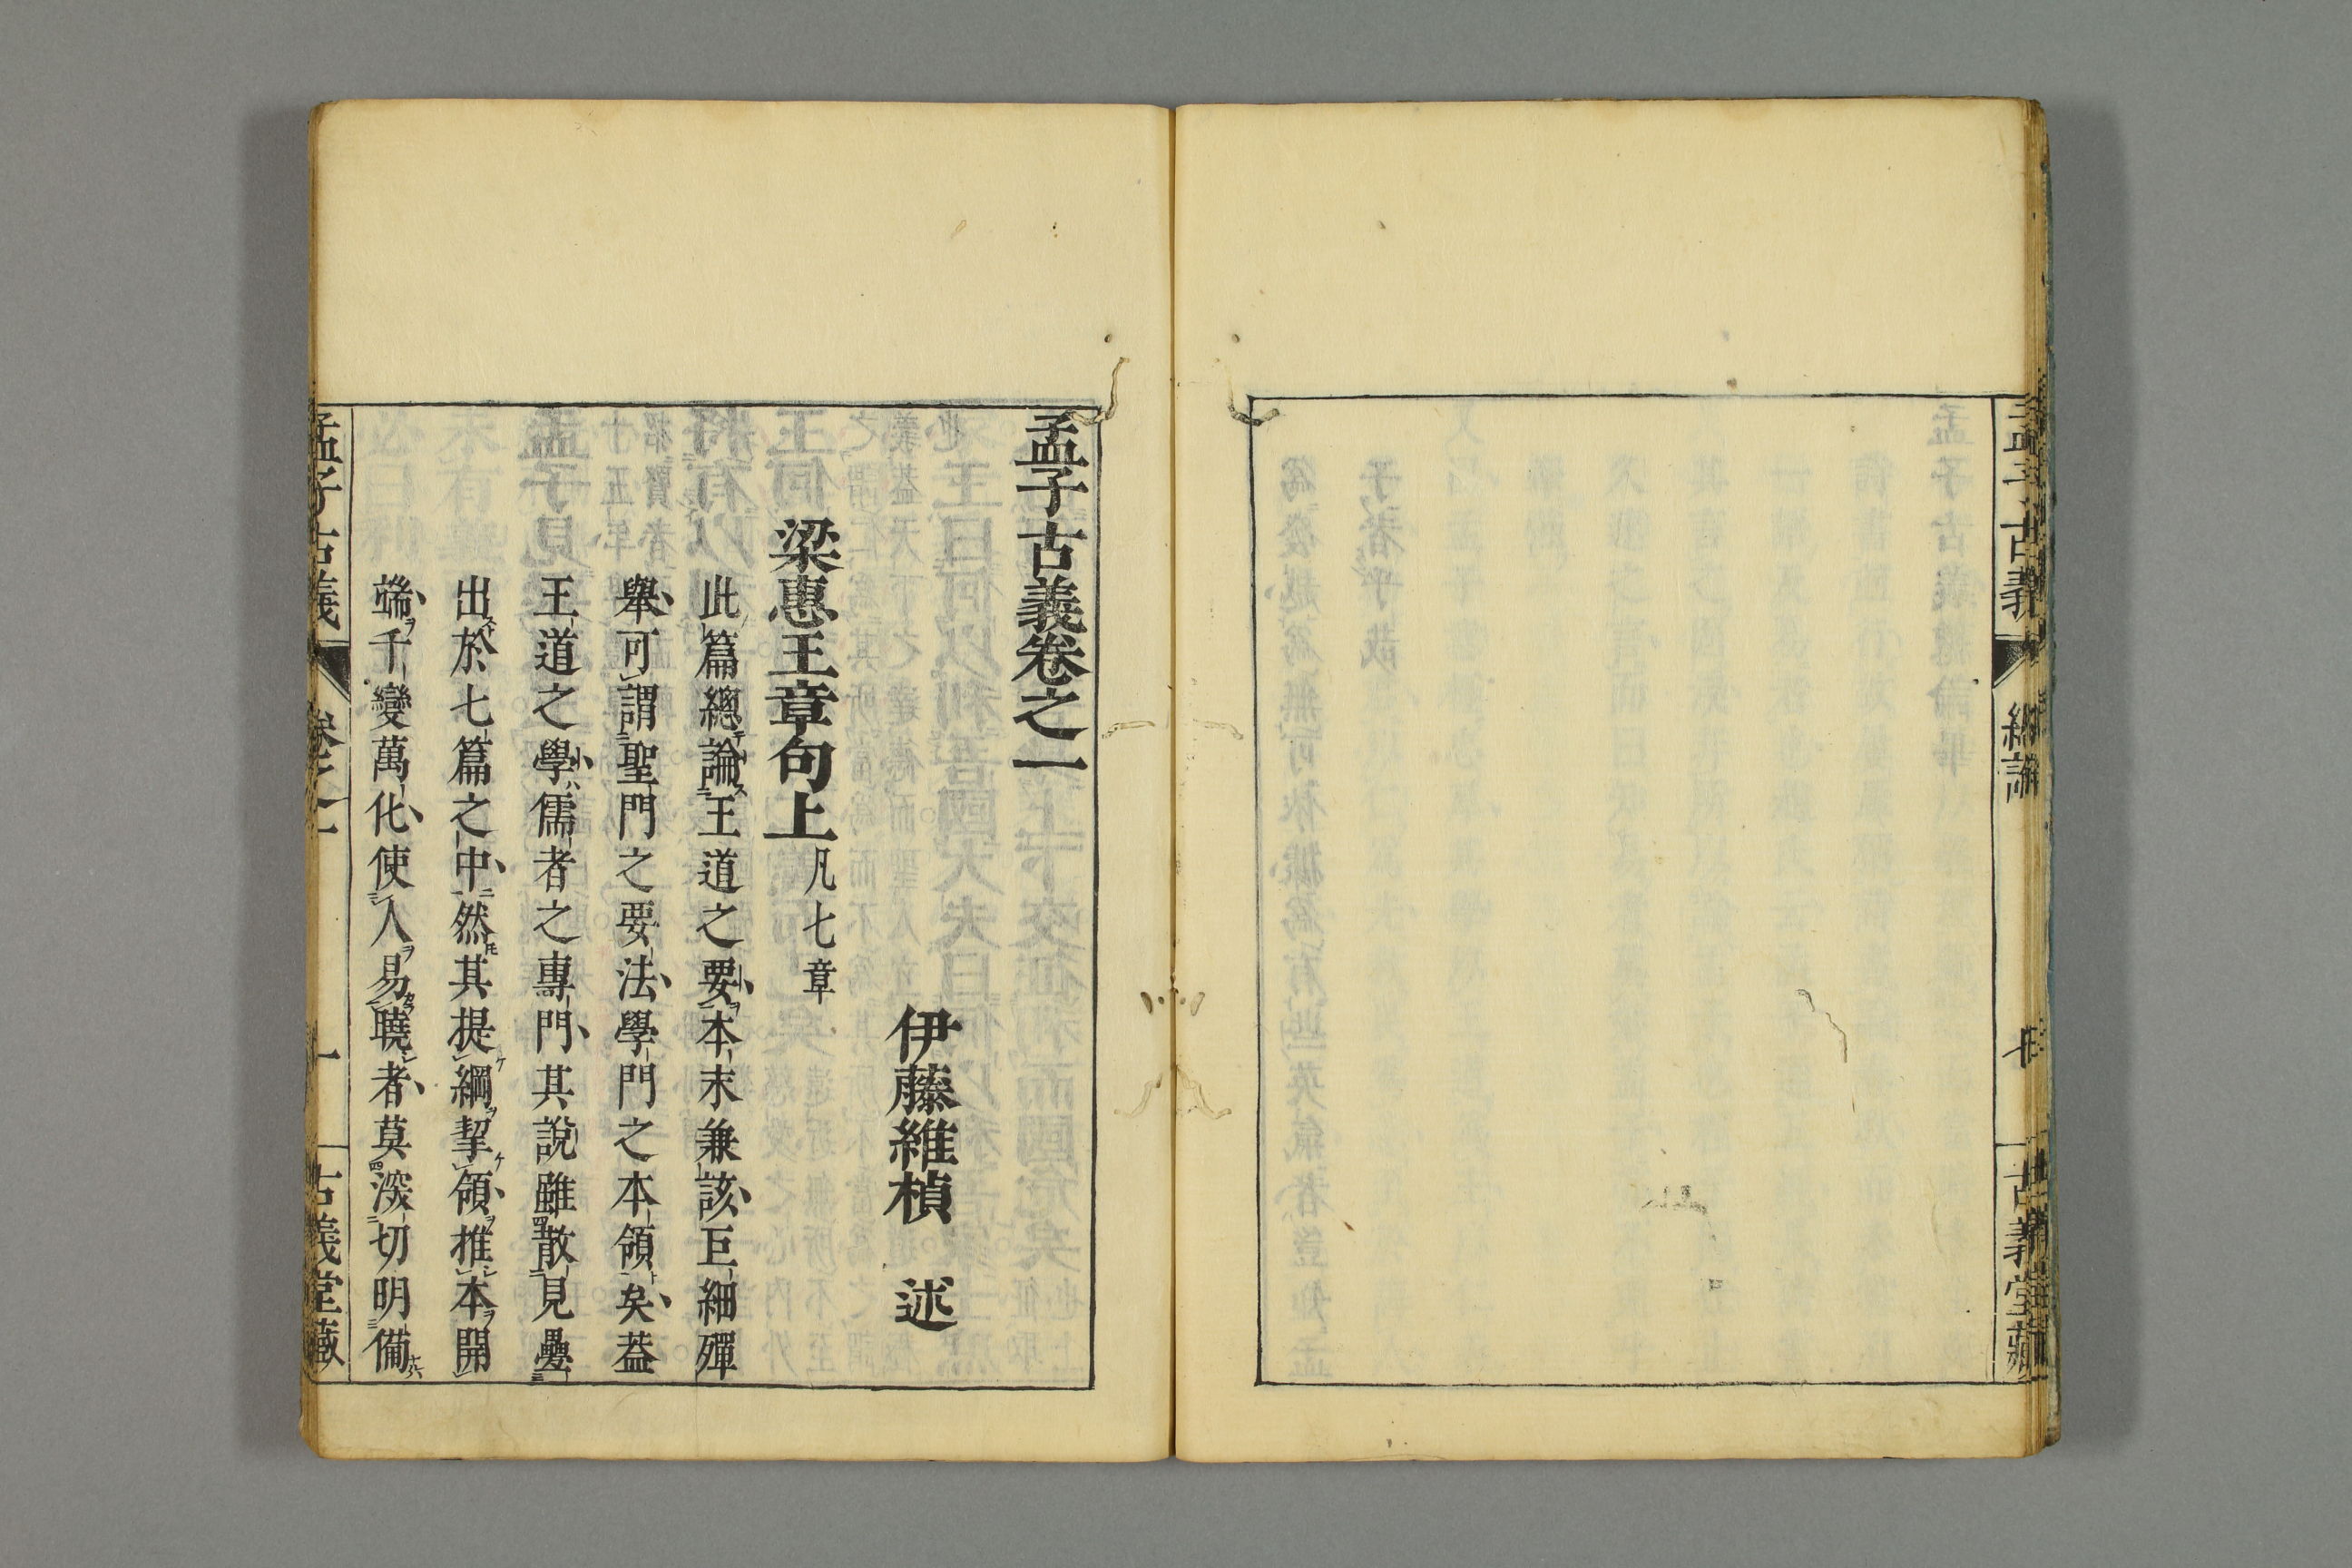 孟子古義
總論
古義堂藏
孟子古義卷之一
伊藤維楨 述
梁惠王章句上 凡七章
此篇總論王道之要本末兼該巨細殫
舉可謂聖門之要法學門之本領矣蓋
王道之學儒者之專門其說雖散見疊
出於七篇之中然其提綱挈領推本開
端千變萬化使人易曉者莫深切明備
孟子古義
卷之一
一
古義堂藏